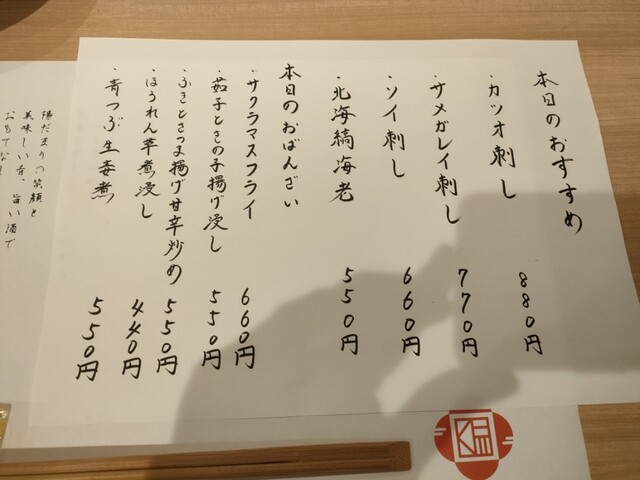 本日のおすすめ
・カツオ刺し 880円
・サメガレイ刺し 770円
・ソイ刺し 660円
・北海縞海老 550円
本日のおばんざい
・サクラマスフライ 660円
・茄子ときの子揚げ浸し 550円
・ふきとさつま揚げ甘辛炒め 550円
・ほうれん草煮浸し 440円
・青つぶ生姜煮 550円
陽だまりの笑顔と
美味しい肴、旨い酒で
おもてなし